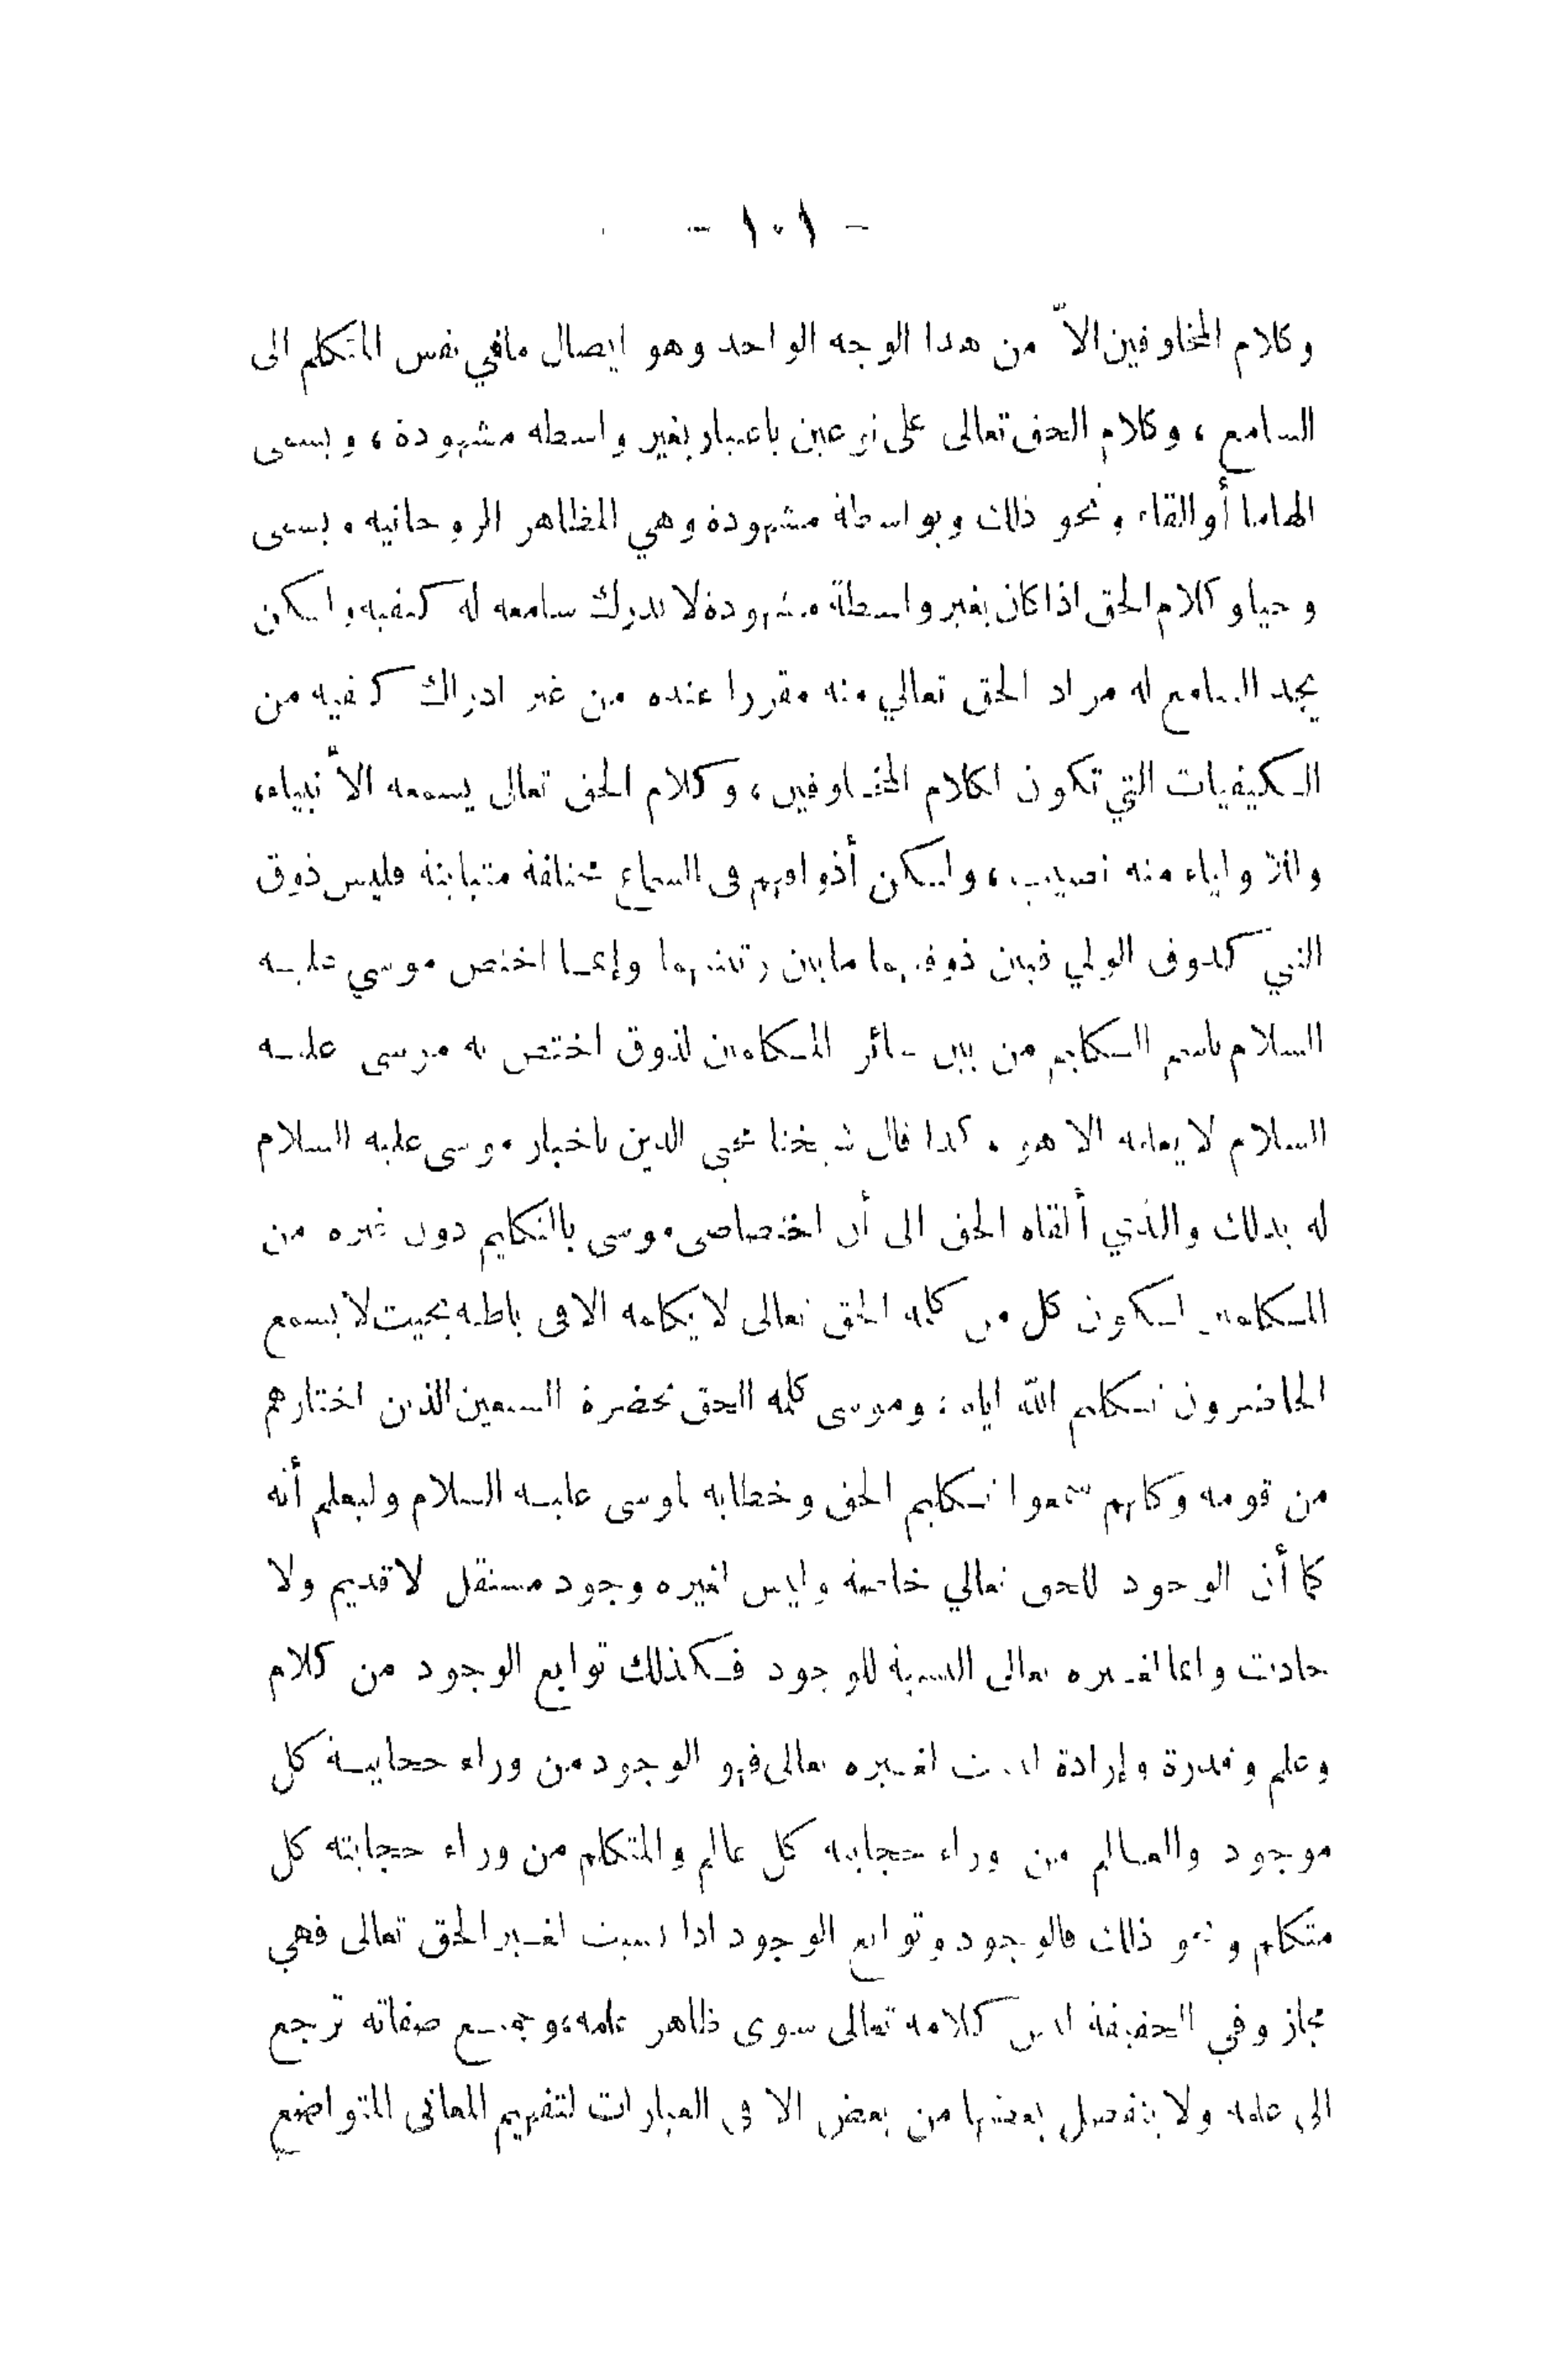 - ١٠١ -
وكلام المخلوقين الاّ من هذا الوجه الواحد وهو ايصال مافي نفس المتكلم الى
السامع ، وكلام الحق تعالى على نوعين باعتبار بغير واسطة مشهودة ، ويسمى
الهاما أو القاء ونحو ذلك وبواسطة مشهودة وهي المظاهر الروحانية ويسمى
وحيا وكلام الحق اذا كان بغير واسطة مشهودة لا يدرك سامعه له كيفيه ولكن
يجد السامع له مراد الحق تعالي منه مقررا عنده من غير ادراك كيفيه من
الكيفيات التي تكون لكلام المخلوقين ، وكلام الحق تعالى يسمعه الأنبياء،
وللأولياء منه نصيب ، ولكن أذواقهم في السماع مختلفة متباينة فليس ذوق
النبي كذوق الولي فبين ذوقيهما مابين رتبتيهما وإنما اختص موسي عليه
السلام باسم الكليم من بين سائر المكلمين لذوق اختص به موسى عليه
السلام لا يعلمه الا هو ، كذا قال شيخنا محي الدين باخبار موسى عليه السلام
له بذلك والذي ألقاه الحق الى أن اختصاص موسى بالتكليم دون غيره من
المكلمين لكون كل من كلمه الحق تعالى لا يكلمه الا في باطنه بحيث لا يسمع
الحاضرون تكليم الله اياه ؛ وموسى كلمه الحق بحضرة السبعين الذين اختارهم
من قومه وكلهم سمعوا تكليم الحق وخطابه لموسى عليه السلام وليعلم أنه
كما أن الوجود للحق تعالي خاصة وليس لغيره وجود مستقل لا قديم ولا
حادث وانما لغيره تعالى النسبة للوجود فكذلك توابع الوجود من كلام
وعلم وقدرة وإرادة ليست لغيره تعالى فهو الوجود من وراء حجابية كل
موجود والعالم من وراء حجابيه كل عالم والمتكلم من وراء حجابته كل
متكلم ونحو ذلك فالوجود وتوابع الوجود اذا نسبت لغير الحق تعالى فهي
مجاز وفي الحقيقة ليس كلامه تعالى سوى ظاهر علمه، وجميع صفاته ترجع
الى علمه ولا ينفصل بعضها من بعض الا في العبارات لتفهيم المعانى المتواضع